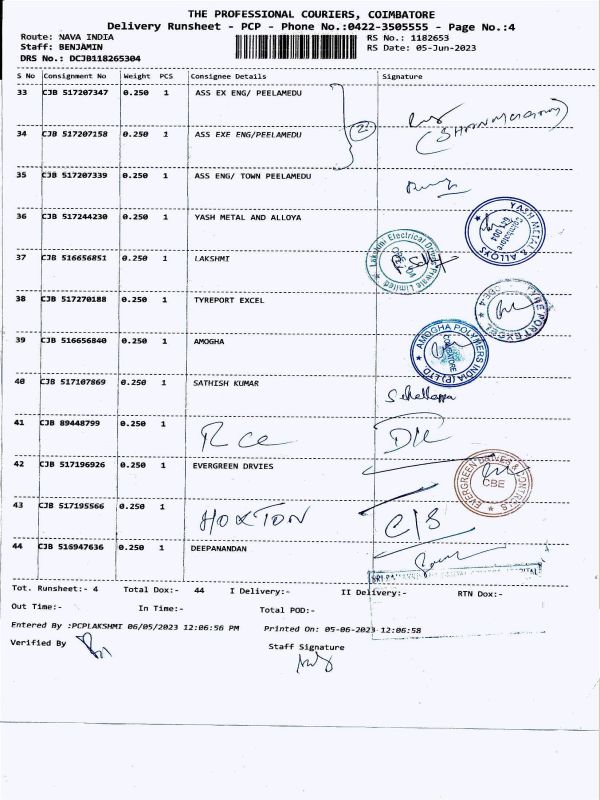 THE PROFESSIONAL COURIERS, COIMBATORE
Delivery Runsheet - PCP - Phone No.:0422-3505555 - Page No.:4
Route: NAVA INDIA RS No.: 1182653
Staff: BENJAMIN RS Date: 05-Jun-2023
DRS No.: DCJB118265304
S No Consignment No Weight PCS Consignee Details Signature
33 CJB 517207347 0.250 1 ASS EX ENG/ PEELAMEDU
34 CJB 517207158 0.250 1 ASS EXE ENG/PEELAMEDU
22
35 CJB 517207339 0.250 1 ASS ENG/ TOWN PEELAMEDU
36 CJB 517244230 0.250 1 YASH METAL AND ALLOYA
YASH METAL & ALLOYS Coimbatore 641 004
37 CJB 516656851 0.250 1 LAKSHMI
Lakshmi Electrical Drives Private Limited
38 CJB 517270188 0.250 1 TYREPORT EXCEL
TYRE PORT EXCEL CBE-4
39 CJB 516656840 0.250 1 AMOGHA
AMOGHA POLYMERS INDIA (P) LTD COIMBATORE
40 CJB 517107869 0.250 1 SATHISH KUMAR
41 CJB 89448799 0.250 1 R Ce
42 CJB 517196926 0.250 1 EVERGREEN DRVIES
EVERGREEN DRIVES & CONTROLS CBE
43 CJB 517195566 0.250 1 HOXTON C/S
44 CJB 516947636 0.250 1 DEEPANANDAN
Tot. Runsheet:- 4 Total Dox:- 44 I Delivery:- II Delivery:- RTN Dox:-
Out Time:- In Time:- Total POD:-
Entered By :PCPLAKSHMI 06/05/2023 12:06:56 PM Printed On: 05-06-2023 12:06:58
Verified By Staff Signature